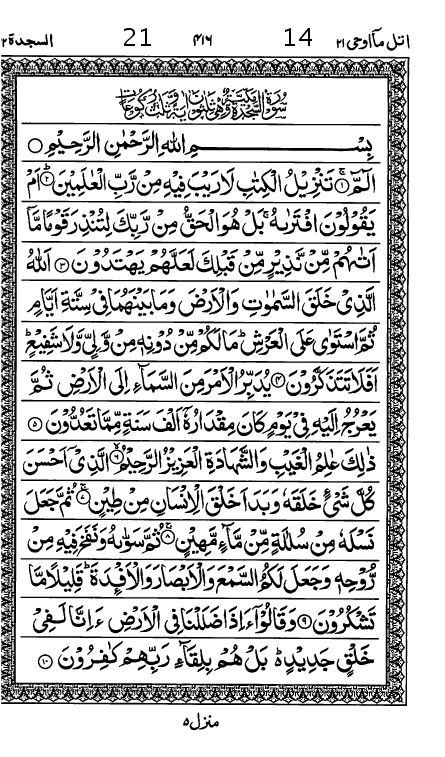 اتل مآاوحی ۲۱ 14 ۴۱۶ 21 السجدة ۳۲
سُوۡرَةُ السَّجۡدَةِ مَكِّيَّةٌ وَّهِيَ ثَلٰثُوۡنَ اٰيَةً وَّثَلٰثُ رُكُوۡعَاتٍ
بِسۡمِ اللّٰهِ الرَّحۡمٰنِ الرَّحِيۡمِ ○
الٓمّٓ ۚ﴿۱﴾ تَنۡزِيۡلُ الۡكِتٰبِ لَا رَيۡبَ فِيۡهِ مِنۡ رَّبِّ الۡعٰلَمِيۡنَ ؕ﴿۲﴾ اَمۡ
يَقُوۡلُوۡنَ افۡتَرٰىهُ ۚ بَلۡ هُوَ الۡحَقُّ مِنۡ رَّبِّكَ لِتُنۡذِرَ قَوۡمًا مَّاۤ
اَتٰىهُمۡ مِّنۡ نَّذِيۡرٍ مِّنۡ قَبۡلِكَ لَعَلَّهُمۡ يَهۡتَدُوۡنَ ﴿۳﴾ اَللّٰهُ
الَّذِىۡ خَلَقَ السَّمٰوٰتِ وَالۡاَرۡضَ وَمَا بَيۡنَهُمَا فِىۡ سِتَّةِ اَيَّامٍ
ثُمَّ اسۡتَوٰى عَلَى الۡعَرۡشِ ؕ مَا لَكُمۡ مِّنۡ دُوۡنِهٖ مِنۡ وَّلِىٍّ وَّلَا شَفِيۡعٍ ؕ
اَفَلَا تَتَذَكَّرُوۡنَ ﴿۴﴾ يُدَبِّرُ الۡاَمۡرَ مِنَ السَّمَآءِ اِلَى الۡاَرۡضِ ثُمَّ
يَعۡرُجُ اِلَيۡهِ فِىۡ يَوۡمٍ كَانَ مِقۡدَارُهٗۤ اَلۡفَ سَنَةٍ مِّمَّا تَعُدُّوۡنَ ﴿۵﴾
ذٰلِكَ عٰلِمُ الۡغَيۡبِ وَالشَّهَادَةِ الۡعَزِيۡزُ الرَّحِيۡمُ ۙ﴿۶﴾ الَّذِىۡۤ اَحۡسَنَ
كُلَّ شَىۡءٍ خَلَقَهٗ وَبَدَاَ خَلۡقَ الۡاِنۡسَانِ مِنۡ طِيۡنٍ ۚ﴿۷﴾ ثُمَّ جَعَلَ
نَسۡلَهٗ مِنۡ سُلٰلَةٍ مِّنۡ مَّآءٍ مَّهِيۡنٍ ۚ﴿۸﴾ ثُمَّ سَوّٰىهُ وَنَفَخَ فِيۡهِ مِنۡ
رُّوۡحِهٖ وَجَعَلَ لَكُمُ السَّمۡعَ وَالۡاَبۡصَارَ وَالۡاَفۡـِٕدَةَ ؕ قَلِيۡلًا مَّا
تَشۡكُرُوۡنَ ﴿۹﴾ وَقَالُوۡۤا ءَاِذَا ضَلَلۡنَا فِى الۡاَرۡضِ ءَاِنَّا لَفِىۡ
خَلۡقٍ جَدِيۡدٍ ؕ بَلۡ هُمۡ بِلِقَآءِ رَبِّهِمۡ كٰفِرُوۡنَ ﴿۱۰﴾
منزل ۵